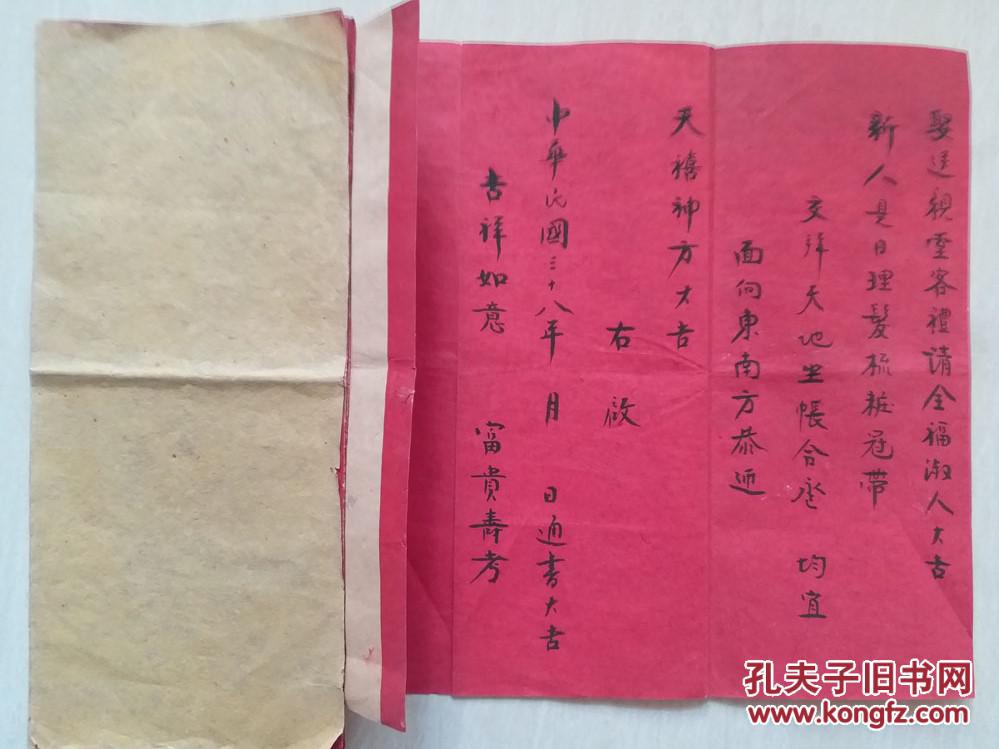 娶送親 客禮請全福淑人大吉
新人是日理髮梳粧冠帶
交拜天地坐帳合卺 均宜
面向東南方恭迎
天禧神方大吉
右啟
中華民國三十八年 月 日通書大吉
吉祥如意 富貴壽考
孔夫子旧书网
www.kongfz.com